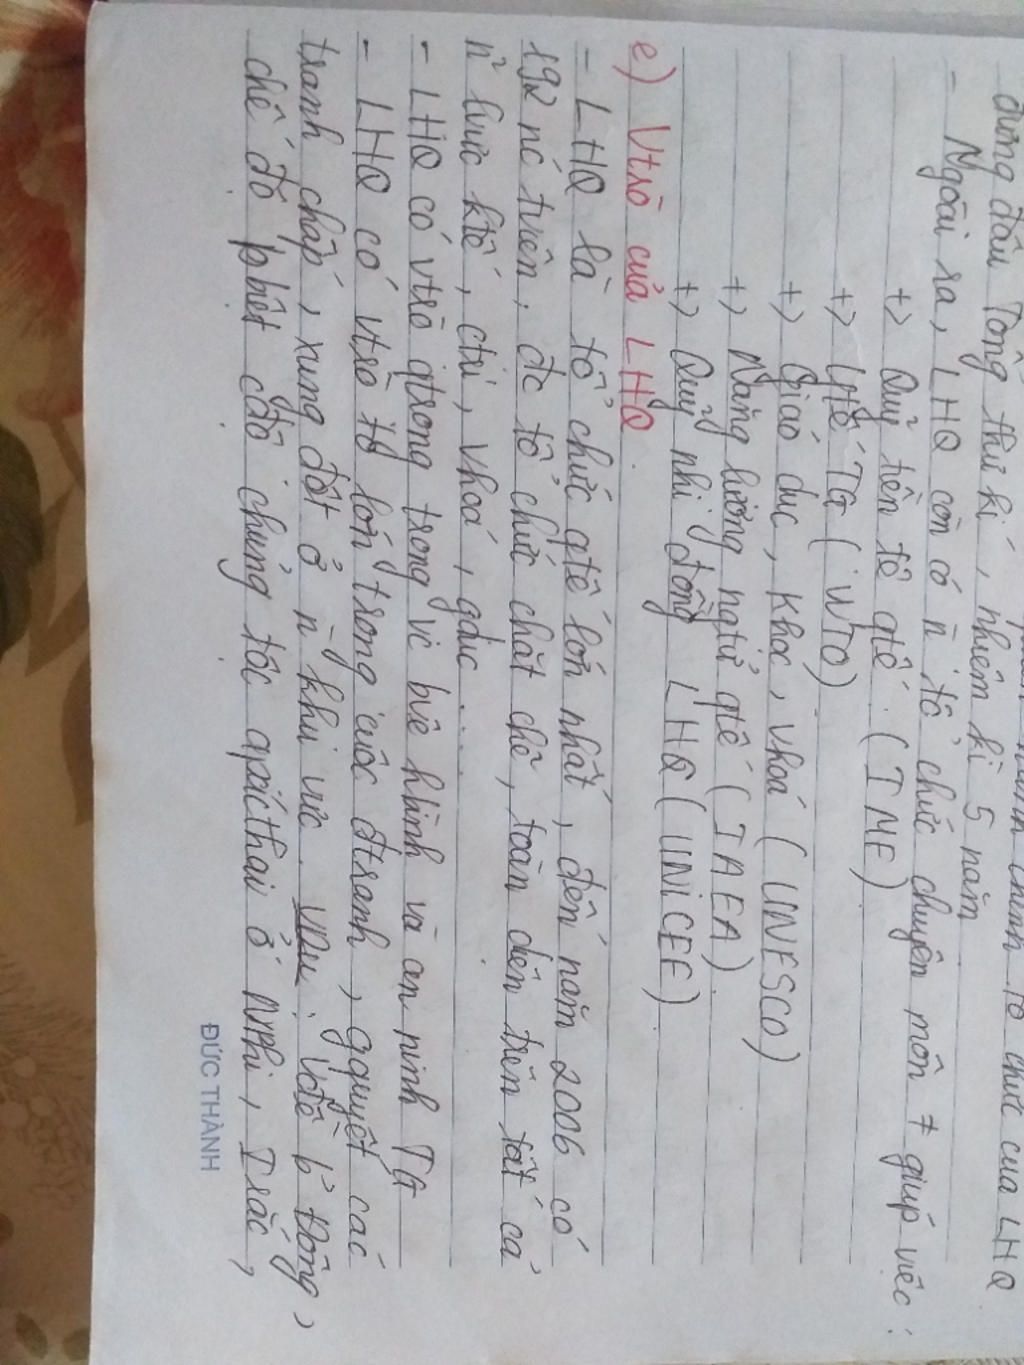 hành chính tổ chức của LHQ
đứng đầu Tổng thư kí, nhiệm kì 5 năm
- Ngoài ra, LHQ còn có n` tổ chức chuyên môn ≠ giúp việc:
+) Quỹ tiền tệ qtế (IMF)
+) Tế TG (WTO)
+) Giáo dục, khọc, vhoá (UNESCO)
+) Năng lượng ngtử qtế (IAEA)
+) Quỹ nhi đồng LHQ (UNICEF)
e) Vtrò của LHQ
- LHQ là tổ chức qtế lớn nhất, đến năm 2006 có
192 nc tviên, đc tổ chức chặt chẽ, toàn diện trên tất cả
lvực ktế, ctrị, vhoá, gdục....
- LHQ có vtrò qtrọng trong vc bvệ hbình và an ninh TG
- LHQ có vtrò to lớn trong cuộc đtranh, gquyết các
tranh chấp, xung đột ở n` khu vực. VDụ: Vđề b' Đông,
chế độ pbiệt cđộ chủng tộc apácthai ở NPhi, Irắc,
ĐỨC THÀNH